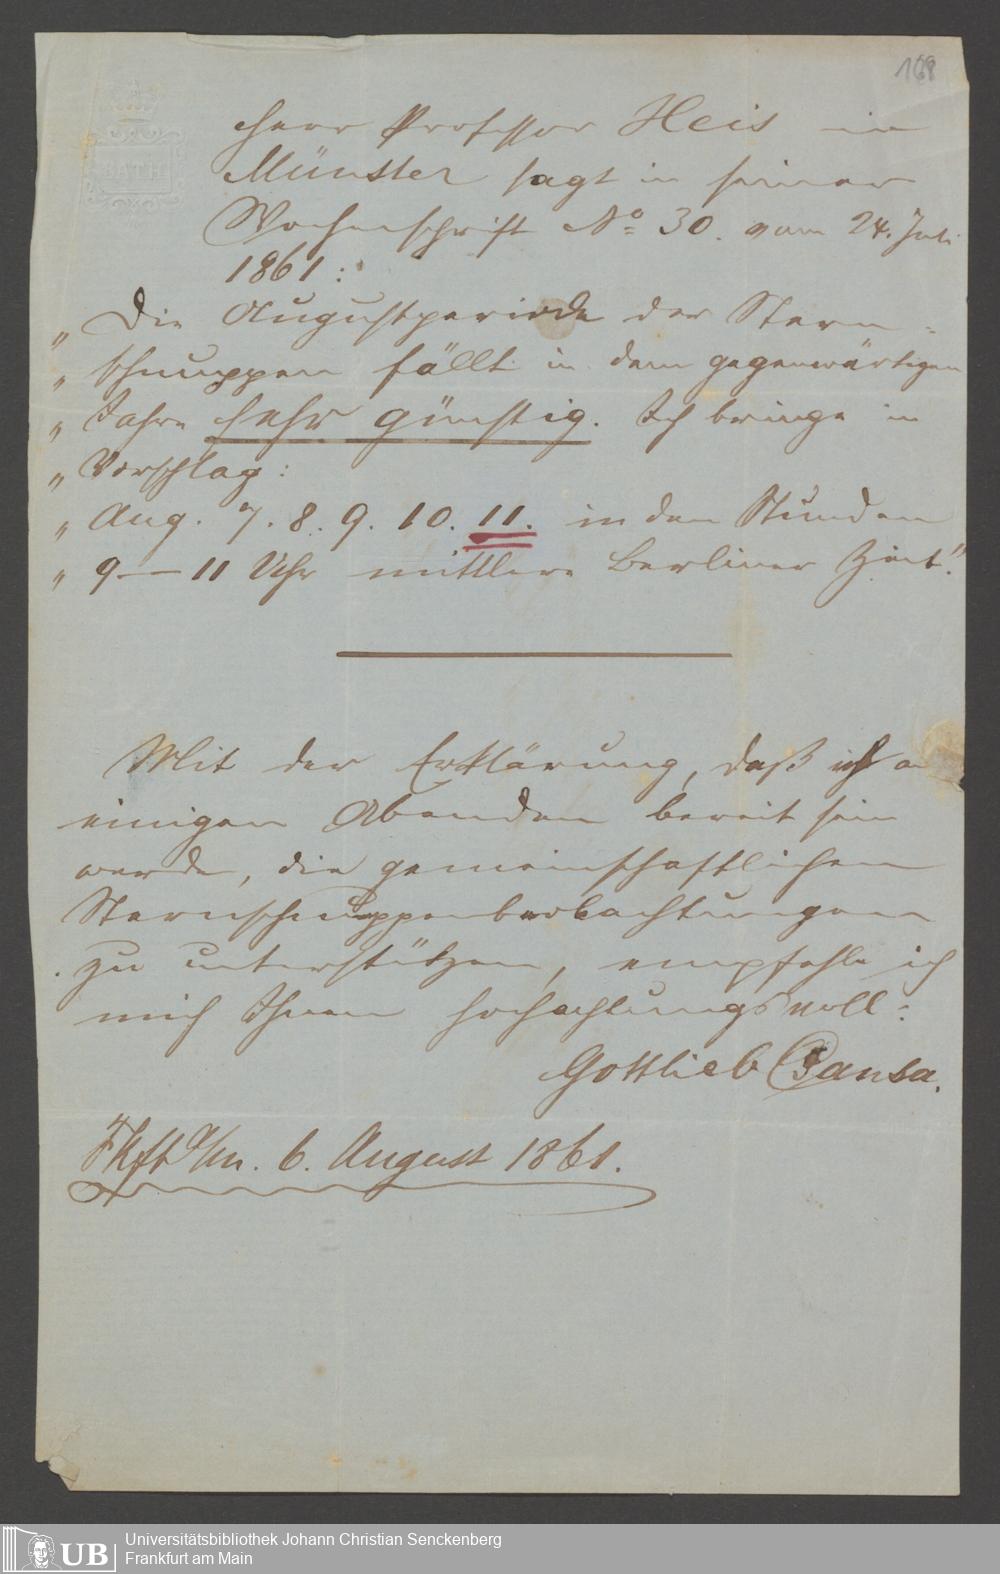 168
BATH
Herr Professor Heis in
Münster sagt in seiner
Wochenschrift No 30. vom 24. Juli
1861:
„Die Augustperiode der Stern-
„schnuppen fällt in dem gegenwärtigen
„Jahre sehr günstig. Ich bringe in
„Vorschlag:
„Aug. 7. 8. 9. 10. 11. in den Stunden
„9–11 Uhr mittlere Berliner Zeit."
Mit der Erklärung, daß ich an
einigen Abenden bereit sein
werde, die gemeinschaftlichen
Sternschnuppenbeobachtungen
zu unterstützen, empfehle ich
mich Ihnen hochachtungsvoll:
Gottlieb Gansa.
Fkft a/m. 6. August 1861.
UB
Universitätsbibliothek Johann Christian Senckenberg
Frankfurt am Main